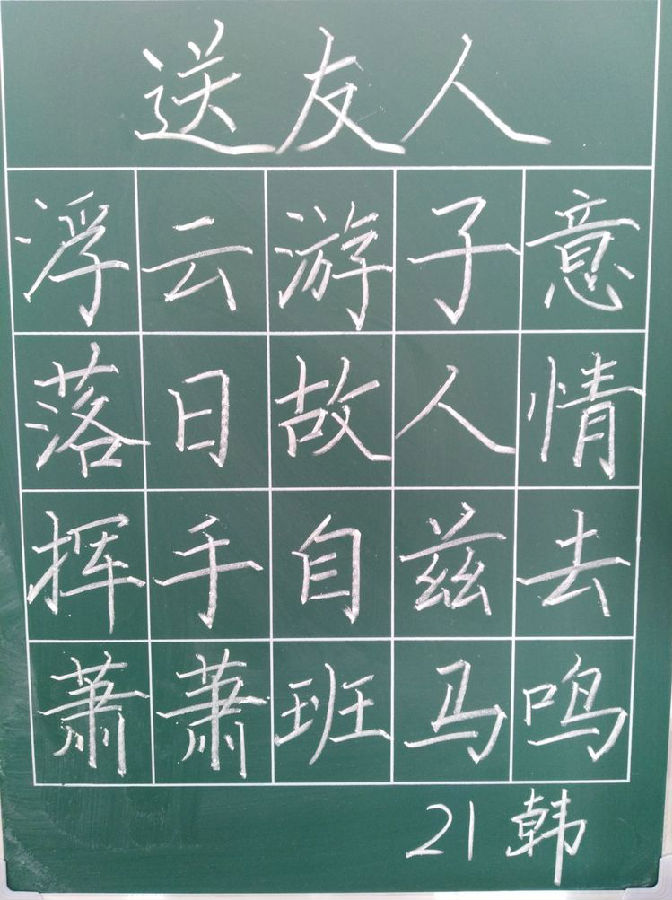 送友人
浮云游子意
落日故人情
挥手自兹去
萧萧班马鸣
21韩